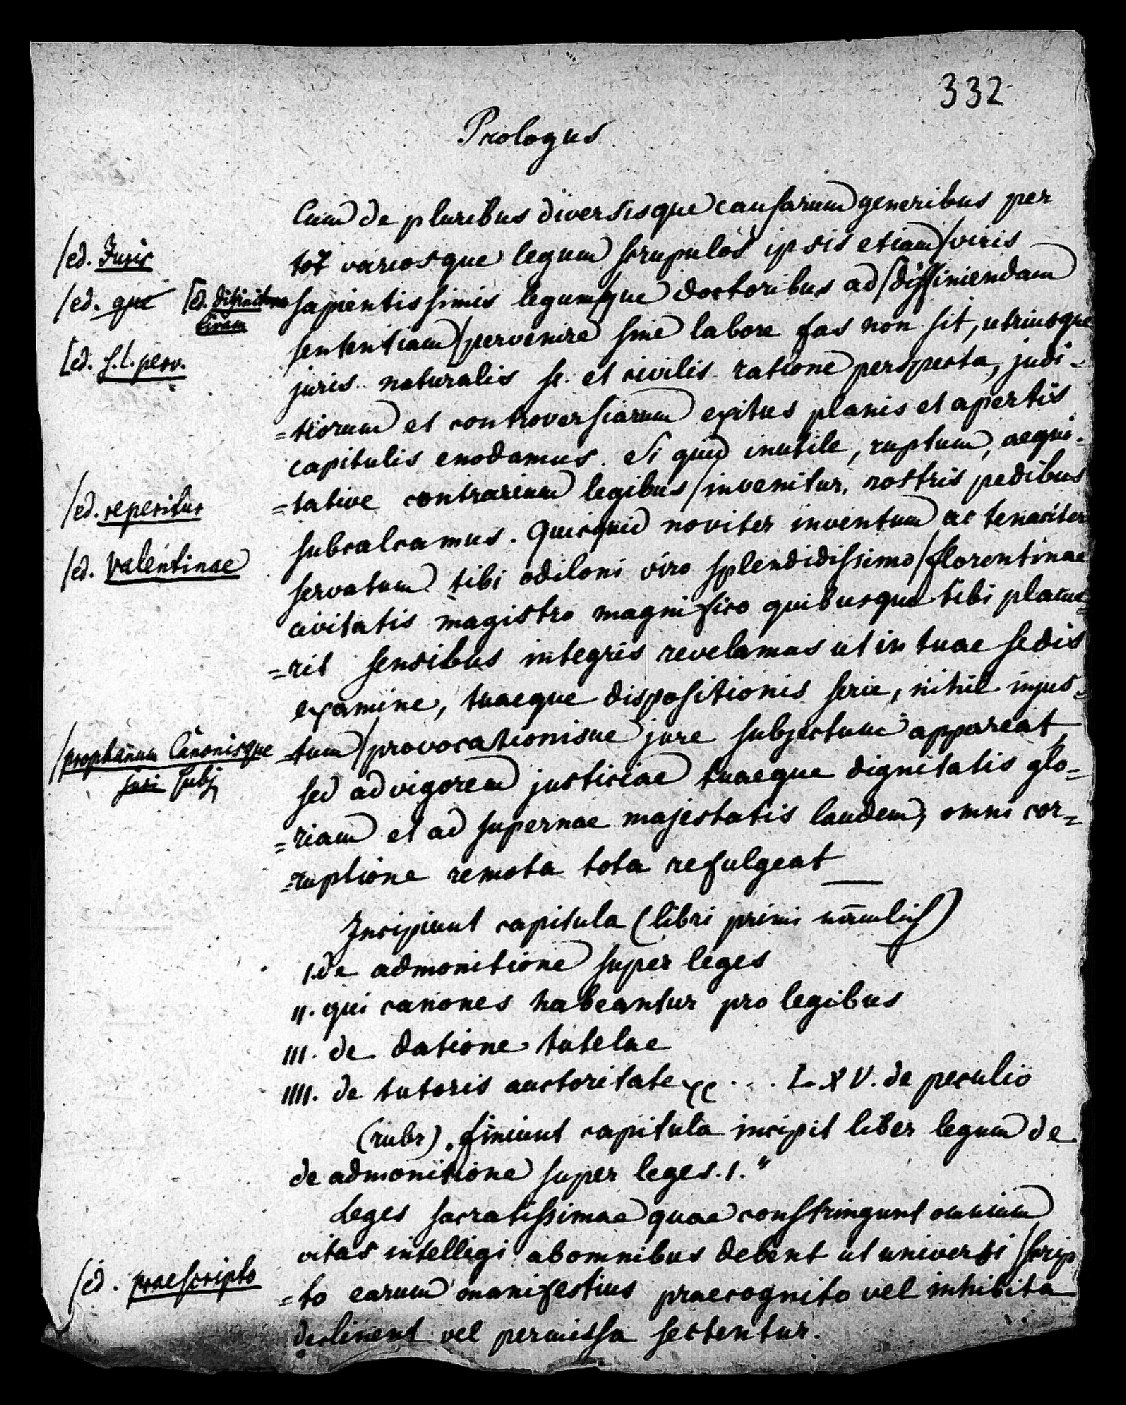 332
Prologus
Cum de pluribus diversisque causarum generibus per
tot variosque legum scrupulos ipsis etiam / viris
/ed. Juris
sapientissimis legumque doctoribus ad / diffiniendam
/ed. que
sententiam / pervenire sine labore fas non sit, utriusque
/ed. s. l. perv.
juris naturalis sc. et civilis ratione perspecta, judi-
=tiorum et controversiarum exitus planis et apertis
capitulis enodamus. Si quid inutile, ruptum, aequi-
=tative contrarium legibus / invenitur, nostris pedibus
/ed. reperitur
subcalcamus. Quicquid noviter inventum ac tenaciter
servatum tibi odiloni viro splendidissimo / florentinae
/ed. Valentinae
civitatis magistro magnifico quibusque tibi placue=
=rit sensibus integris revelamus ut in tuae sedis
examine, tuaeque dispositionis serie, nihil injus=
=tum / provocationisue jure subjectum appareat
/prophanum Canonisque
juri subj
sed ad vigorem justiciae tuaeque dignitatis glo=
=riam et ad supernae majestatis laudem, omni cor=
=ruptione remota tota refulgeat
Incipiunt capitula (libri primi
I. de admonitione super leges
II. qui canones habeantur pro legibus
III. de datione tutelae
IIII. de tutoris auctoritate ... LXV. de peculio
(rubr). finiunt capitula incipit liber legum de
de admonitione super leges. I."
Leges sacratissimae quae constringunt omnium
vitas intelligi ab omnibus debent ut universi / scrip
/ed. praescripto
=to earum manifestius praecognito vel inhibita
declinent vel permissa sectentur.